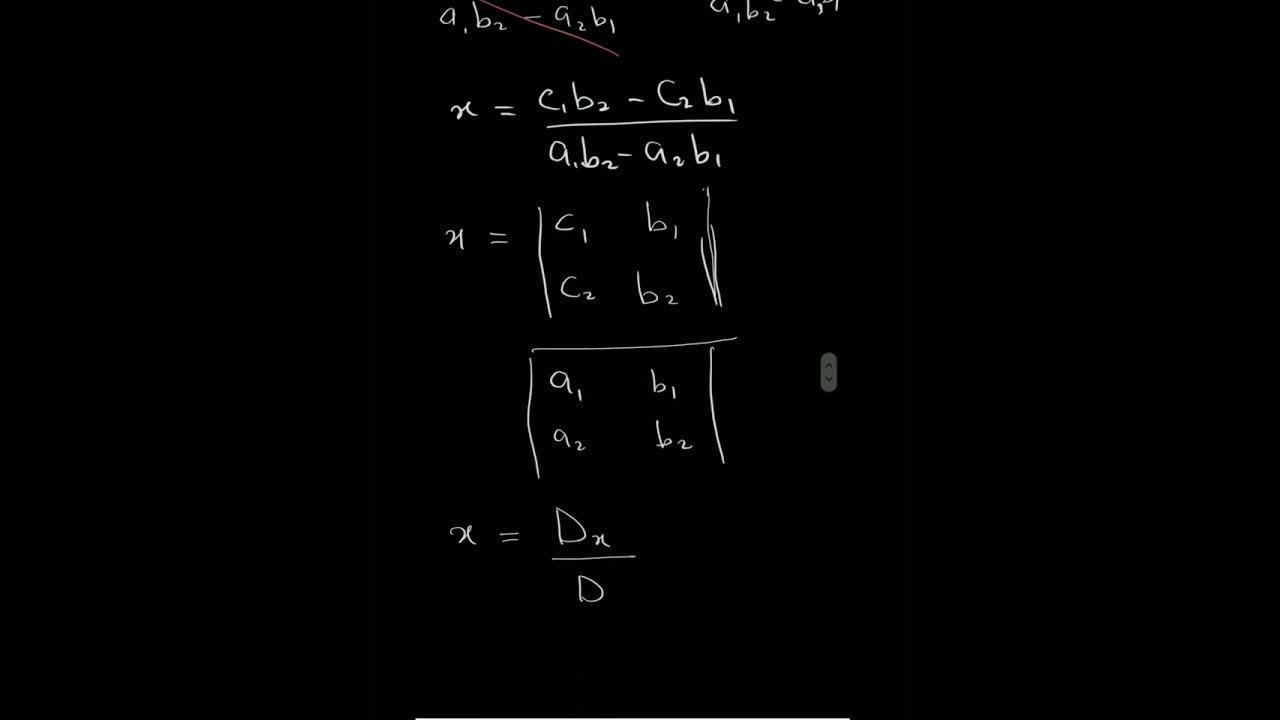 a₁b₂ - a₂b₁ a₁b₂ -
x = c₁b₂ - c₂b₁
a₁b₂ - a₂b₁
x = | c₁ b₁ |
| c₂ b₂ |
| a₁ b₁ |
| a₂ b₂ |
x = Dₓ
D